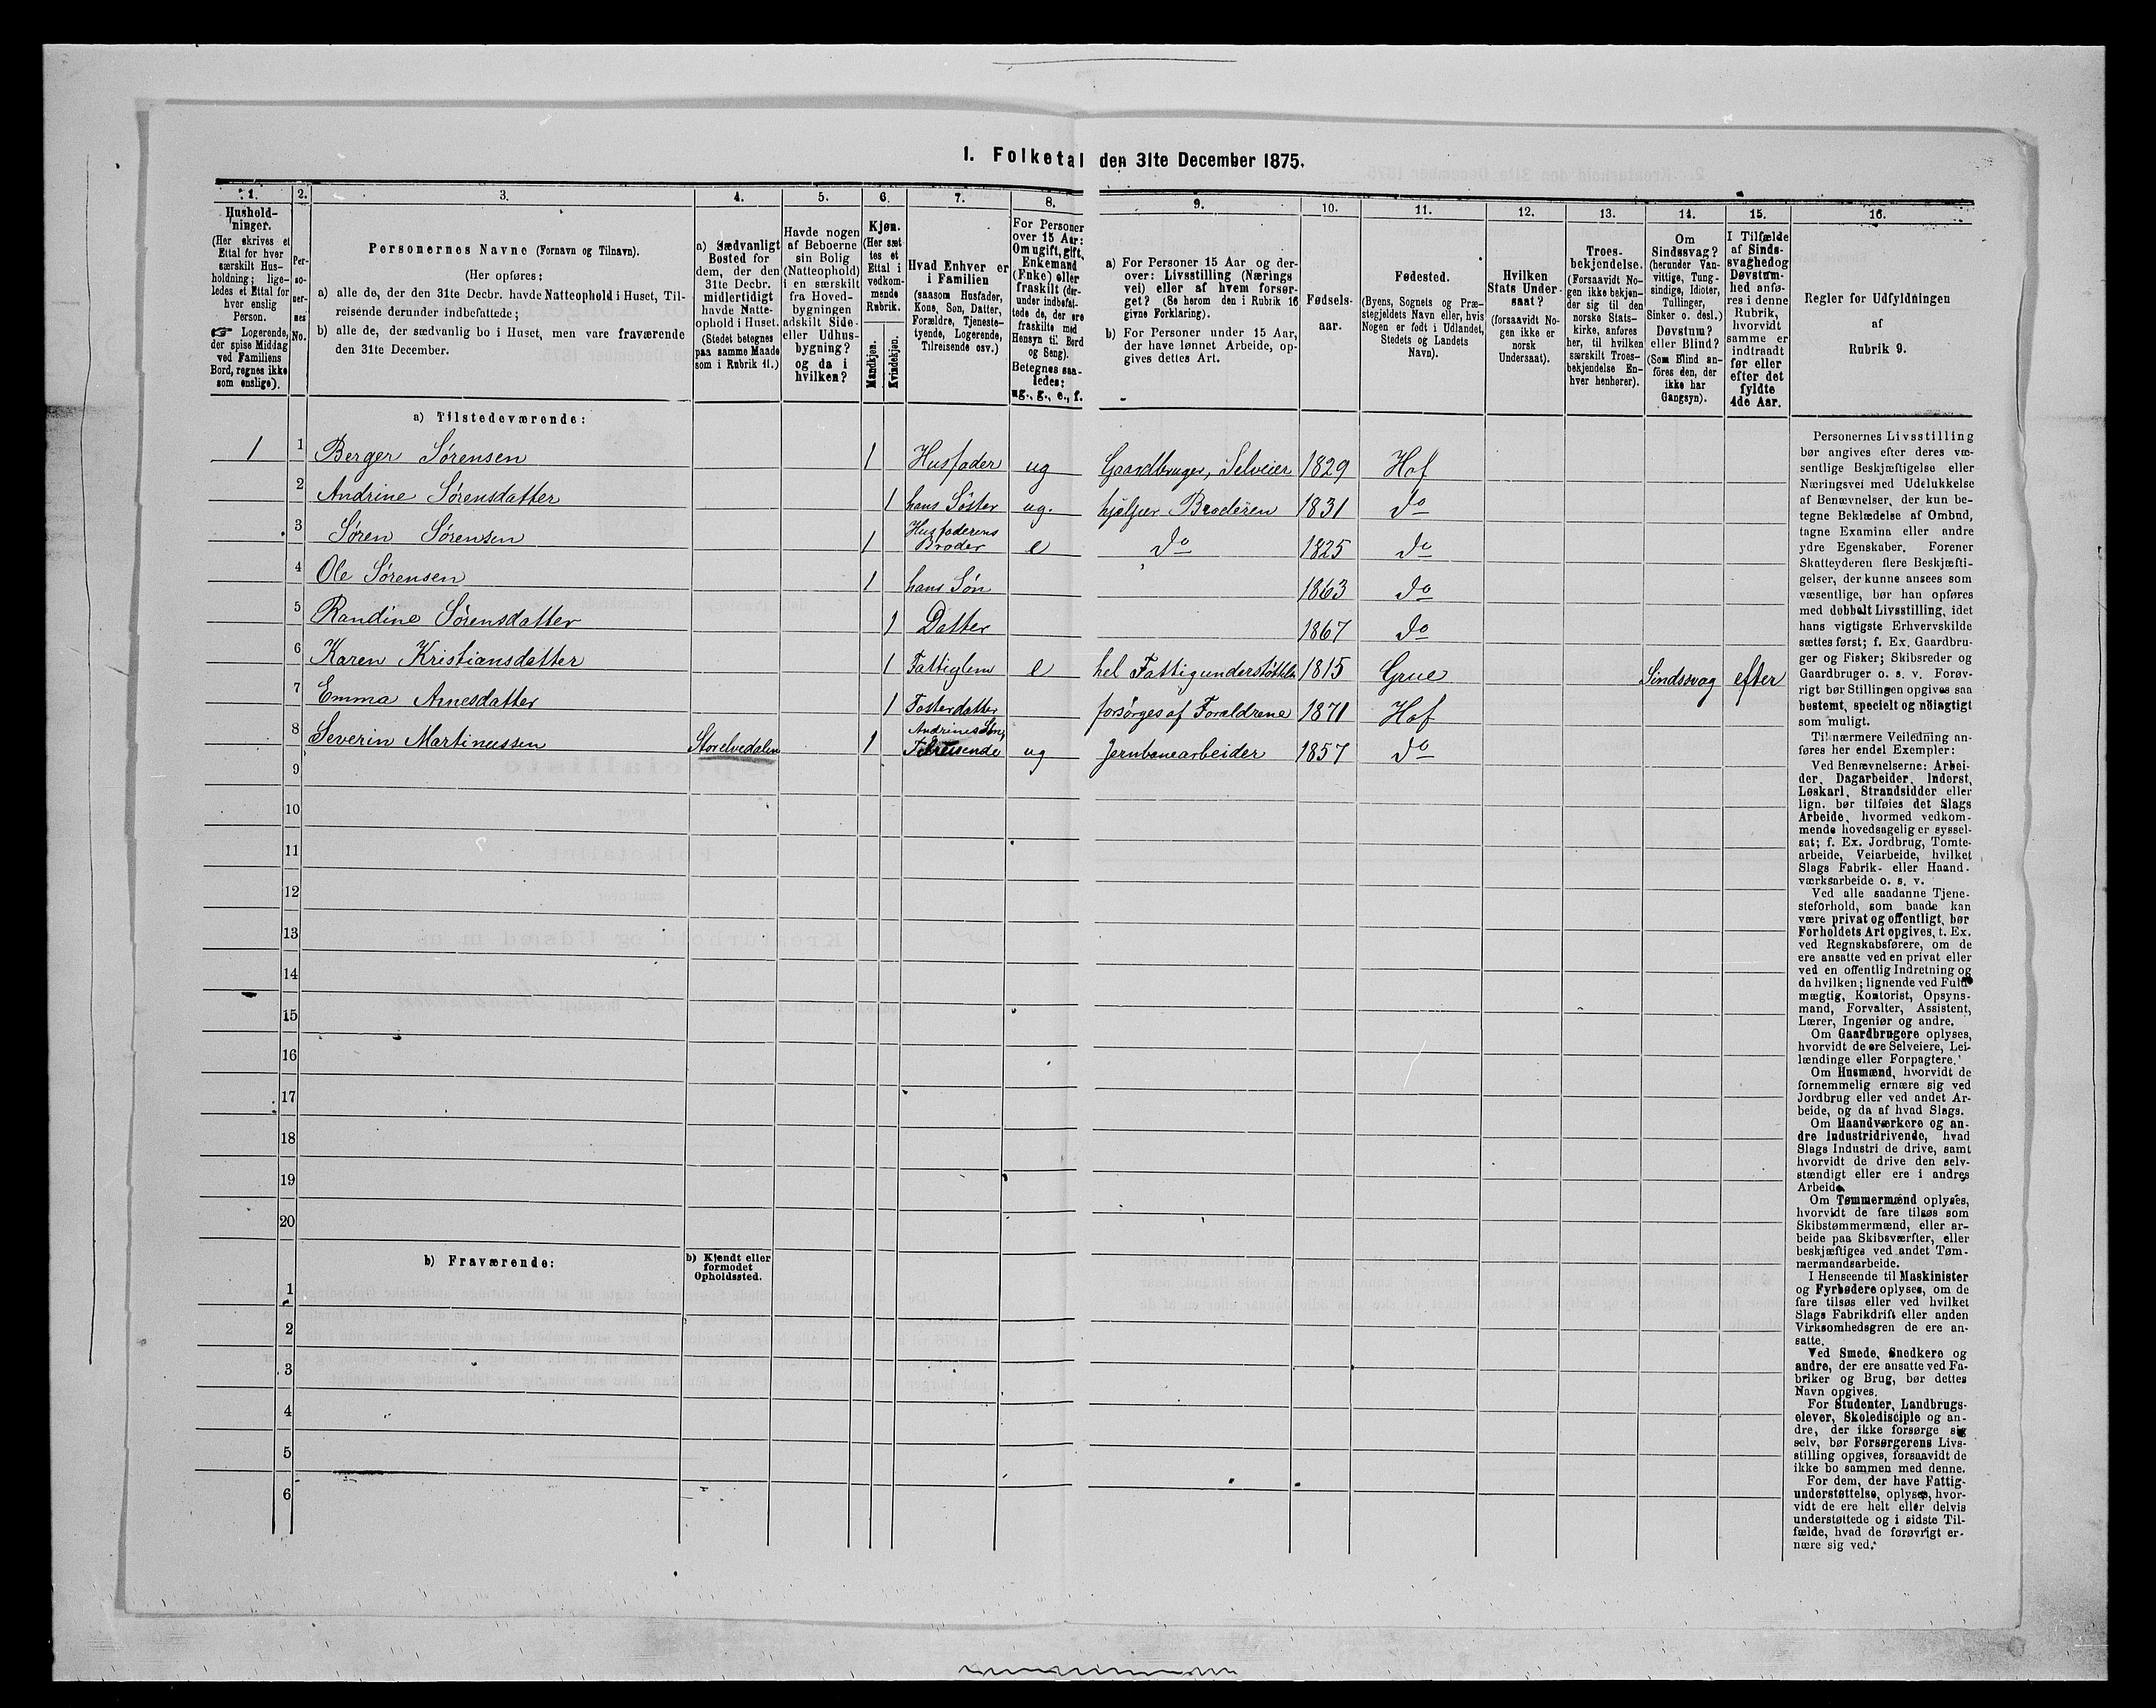 I. Folketal den 31te December 1875.
1. 2. 3. 4. 5. 6. 7. 8. 9. 10. 11. 12. 13. 14. 15. 16.
Hushold-
ninger.
(Her skrives et
Ettal for hver
særskilt Hus-
holdning; lige-
ledes et Ettal for
hver enslig
Person.
☛ Logerende,
der spise Middag
ved Familiens
Bord, regnes ikke
som enslige).
Per-
so-
ner-
nes
No.
Personernes Navne (Fornavn og Tilnavn).
(Her opføres:
a) alle de, der den 31te Decbr. havde Natteophold i Huset, Til-
reisende derunder indbefattede;
b) alle de, der sædvanlig bo i Huset, men vare fraværende
den 31te December.
a) Sædvanligt
Bosted for
dem, der den
31te Decbr.
midlertidigt
havde Natte-
ophold i Huset.
(Stedet betegnes
paa samme Maade
som i Rubrik 11.)
Havde nogen
af Beboerne
sin Bolig
(Natteophold)
i en særskilt
fra Hoved-
bygningen
adskilt Side-
eller Udhus-
bygning?
og da i
hvilken?
Kjøn.
(Her sæt
tes et
Ettal i
vedkom-
mende
Rubrik.
Mandkjøn.
Kvindekjøn.
Hvad Enhver er
i Familien
(saasom Husfader,
Kone, Søn, Datter,
Forældre, Tjeneste-
tyende, Logerende,
Tilreisende osv.)
For Personer
over 15 Aar:
Om ugift, gift,
Enkemand
(Enke) eller
fraskilt (der-
under indbefat-
tede de, der ere
fraskilte med
Hensyn til Bord
og Seng).
Betegnes saa-
ledes:
ug., g., e., f.
a) For Personer 15 Aar og der-
over: Livsstilling (Nærings
vei) eller af hvem forsør-
get? (Se herom den i Rubrik 16
givne Forklaring).
b) For Personer under 15 Aar,
der have lønnet Arbeide, op-
gives dettes Art.
Fødsels-
aar.
Fødested.
(Byens, Sognets og Præ-
stegjeldets Navn eller, hvis
Nogen er født i Udlandet,
Stedets og Landets
Navn).
Hvilken
Stats Under-
saat?
(forsaavidt No-
gen ikke er
norsk
Undersaat).
Troes-
bekjendelse.
(Forsaavidt No-
gen ikke bekjen-
der sig til den
norske Stats-
kirke, anføres
her, til hvilken
særskilt Troes-
bekjendelse En-
hver henhører).
Om
Sindssvag?
(herunder Van-
vittige, Tung-
sindige, Idioter,
Tullinger,
Sinker o. desl.)
Døvstum?
eller Blind?
(Som Blind an-
føres den, der
ikke har
Gangsyn).
I Tilfælde
af Sinds-
svaghed og
Døvstum-
hed anfø-
res i denne
Rubrik,
hvorvidt
samme er
indtraadt
før eller
efter det
fyldte
4de Aar.
Regler for Udfyldningen
af
Rubrik 9.
a) Tilstedeværende:
1 1 Berger Sørensen 1 Husfader ug Gaardbruger, Selveier 1829 Hof
2 Andrine Sørensdatter 1 hans Söster ug. hjelper Broderen 1831 do
3 Sören Sörensen 1 Husfaderens Broder e do 1825 do
4 Ole Sörensen 1 hans Sön 1863 do
5 Randine Sörensdatter 1 Datter 1867 do
6 Karen Kristiansdatter 1 Fattiglem e hel Fattigunderstöttelse 1815 Grue Sindssvag efter
7 Emma Arnesdatter 1 Fosterdatter forsörges af Forældrene 1871 Hof
8 Severin Martinussen Storelvedalen 1 Andrines Sön, Tilreisende ug Jernbanearbeider 1857 do
9
10
11
12
13
14
15
16
17
18
19
20
b) Fraværende:
b) Kjendt eller
formodet
Opholdssted.
1
2
3
4
5
6
Personernes Livsstilling
bør angives efter deres væ-
sentlige Beskjæftigelse eller
Næringsvei med Udelukkelse
af Benævnelser, der kun be-
tegne Beklædelse af Ombud,
tagne Examina eller andre
ydre Egenskaber. Forener
Skatteyderen flere Beskjæfti-
gelser, der kunne ansees som
væsentlige, bør han opføres
med dobbelt Livsstilling, idet
hans vigtigste Erhvervskilde
sættes først; f. Ex. Gaardbru-
ger og Fisker; Skibsreder og
Gaardbruger o. s. v. Forøv-
rigt bør Stillingen opgives saa
bestemt, specielt og nöiagtigt
som muligt.
Til nærmere Veiledning an-
føres her endel Exempler:
Ved Benævnelserne: Arbei-
der, Dagarbeider, Inderst,
Løskarl, Strandsidder eller
lign. bør tilføies det Slags
Arbeide, hvormed vedkom-
mende hovedsagelig er syssel-
sat; f. Ex. Jordbrug, Tomte-
arbeide, Veiarbeide, hvilket
Slags Fabrik- eller Haand-
værksarbeide o. s. v.
Ved alle saadanne Tjene-
steforhold, som baade kan
være privat og offentligt, bør
Forholdets Art opgives, t. Ex.
ved Regnskabsførere, om de
ere ansatte ved en privat eller
ved en offentlig Indretning og
da hvilken; lignende ved Fuld-
mægtig, Kontorist, Opsyns-
mand, Forvalter, Assistent,
Lærer, Ingeniør og andre.
Om Gaardbrugere oplyses,
hvorvidt de ere Selveiere, Lei-
lændinge eller Forpagtere.
Om Husmænd, hvorvidt de
fornemmelig ernære sig ved
Jordbrug eller ved andet Ar-
beide, og da af hvad Slags.
Om Haandværkere og an-
dre Industridrivende, hvad
Slags Industri de drive, samt
hvorvidt de drive den selv-
stændigt eller ere i andres
Arbeide.
Om Tømmermænd oplyses,
hvorvidt de fare tilsøs som
Skibstømmermænd, eller ar-
beide paa Skibsværfter, eller
beskjæftiges ved andet Tøm-
mermandsarbeide.
I Henseende til Maskinister
og Fyrbødere oplyses, om de
fare tilsøs eller ved hvilket
Slags Fabrikdrift eller anden
Virksomhedsgren de ere an-
satte.
Ved Smede, Snedkere og
andre, der ere ansatte ved Fa-
briker og Brug, bør dettes
Navn opgives.
For Studenter, Landbrugs-
elever, Skoledisciple og an-
dre, der ikke forsørge sig
selv, bør Forsørgerens Livs-
stilling opgives, forsaavidt de
ikke bo sammen med denne.
For dem, der have Fattig-
understøttelse, oplyses, hvor-
vidt de ere helt eller delvis
understøttede og i sidste Til-
fælde, hvad de forøvrigt er-
nære sig ved.